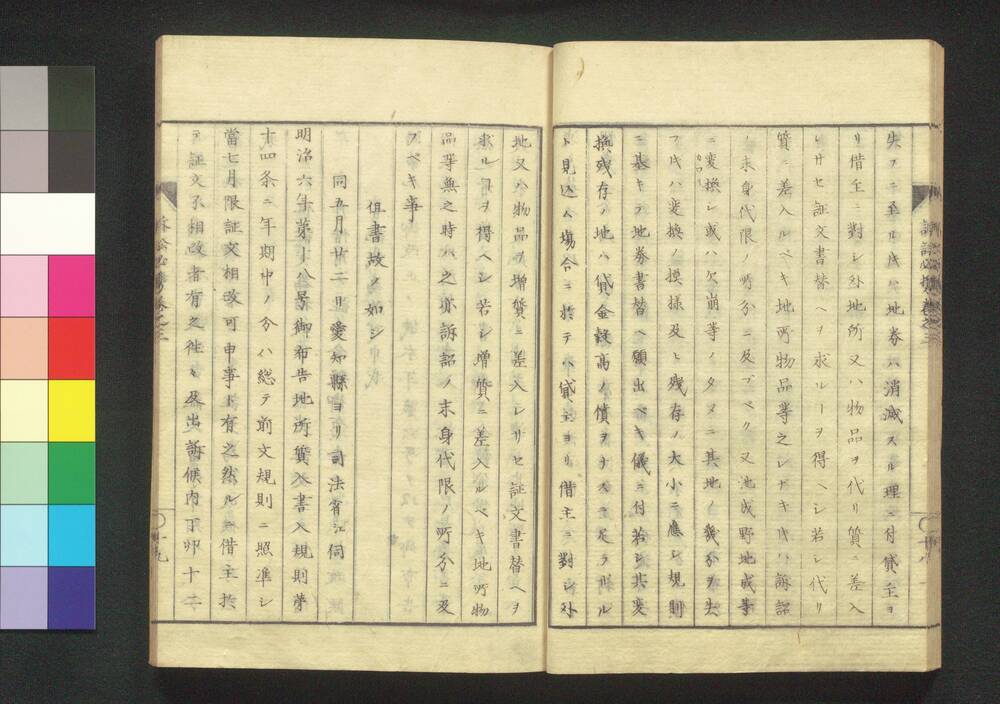 失フニ至ル片ハ地券ハ消滅スル理ニ付貸主ヨ
リ借主ニ對シ外地所又ハ物品ヲ代リ質ニ差入
レサセ証文書替ヘヲ求ルヿヲ得ヘシ若シ代リ
質ニ差入ルベキ地所物品等之レナキ片ハ訴詔
ノ末身代限ノ所分ニ及ブベク又池成野地成等
ニ変換シ或ハ欠崩等ノタメニ其地ノ幾分ヲ失
フ片ハ変換ノ摸様及ヒ残存ノ大小ニ應シ規則
ニ基キテ地券書替ヘ願出ベキ儀ニ付若シ其変
換残存ノ地ハ貸金款高ノ償ヲナスニ足ラザル
ト見込ム場合ニ於テハ貸主ヨリ借主ニ對シ外
地又ハ物品ヲ増質ニ差入レサセ証文書替ヘヲ
求ルヿヲ得ヘシ若シ増質ニ差入ルベキ地所物
品等無之時ハ之亦訴詔ノ末身代限ノ所分ニ及
フベキ事
但書故ノ如シ
同五月廿二日愛知縣ヨリ司法省江伺
明治六年第十八号御布告地所質入書入規則第
十四条ニ年期中ノ分ハ総テ前文規則ニ照準シ
當七月限証文相改可申事ト有之然ルニ借主於
テ証文不相改者有之往々及出訴候内丁卯十二
十八
十九